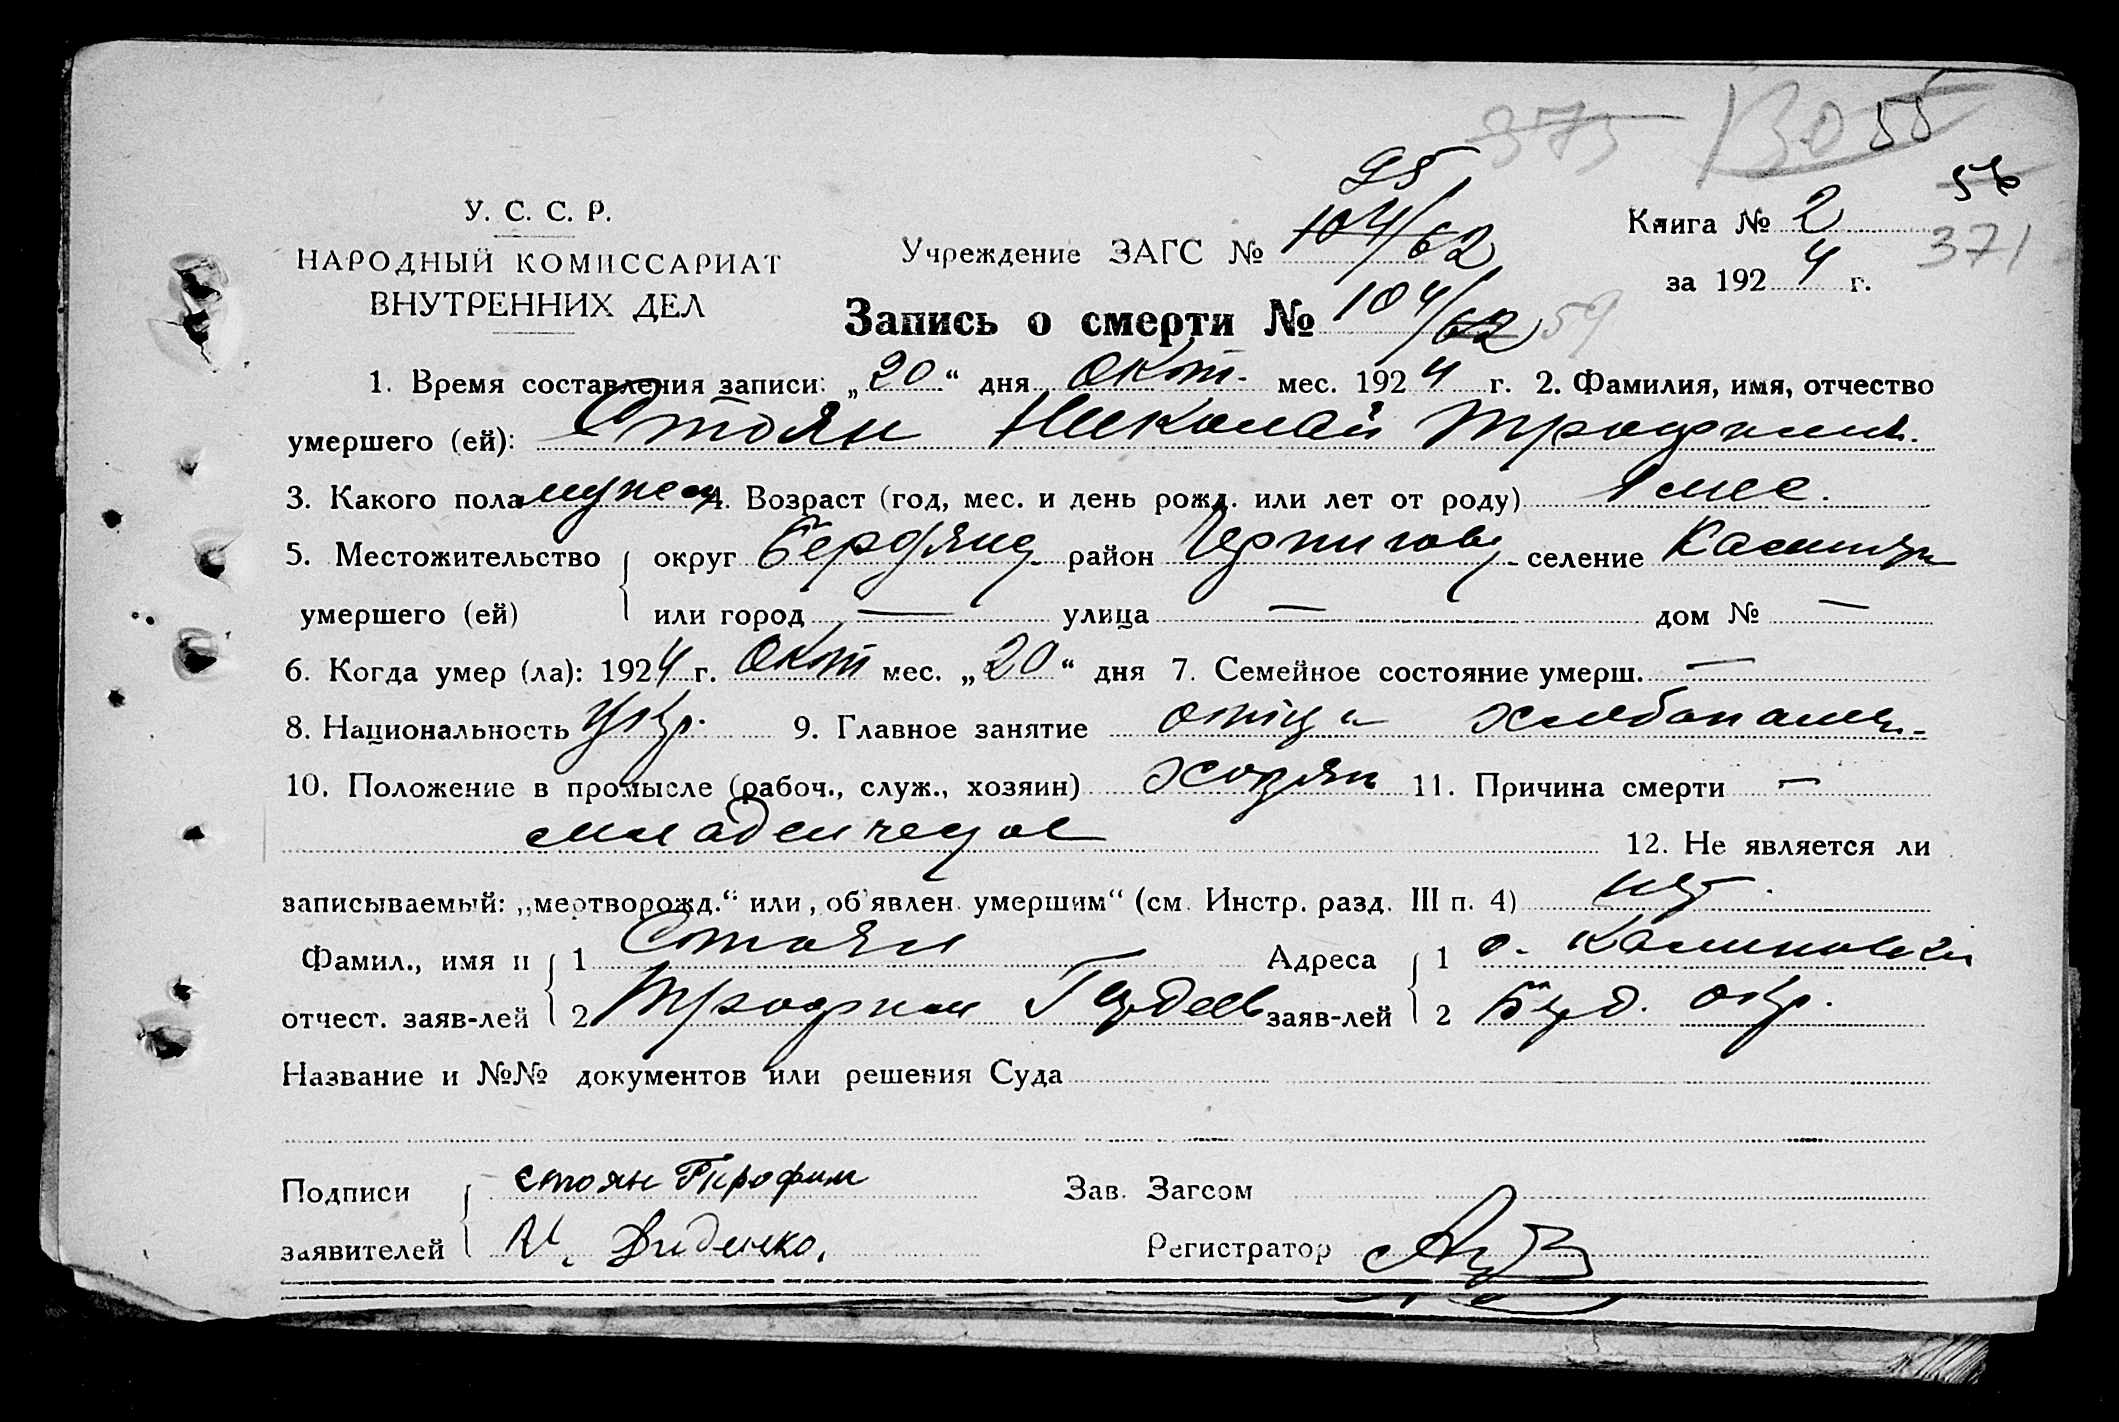 375 130 55
95
56
У. С. С. Р.
НАРОДНЫЙ КОМИССАРИАТ
ВНУТРЕННИХ ДЕЛ
Учреждение ЗАГС № 104/62
Книга № 2
371
за 1924 г.
Запись о смерти № 104/62 59
1. Время составления записи: „20“ дня Окт. мес. 1924 г. 2. Фамилия, имя, отчество
умершего (ей): Стоян Николай Трофимов.
3. Какого пола мужск 4. Возраст (год, мес. и день рожд. или лет от роду) 1 мес.
5. Местожительство округ Бердянс. район Чернигов. селение
умершего (ей) или город — улица — дом № —
6. Когда умер (ла): 1924 г. Окт мес. „20“ дня 7. Семейное состояние умерш. —
8. Национальность Укр. 9. Главное занятие отца хлебопашец
10. Положение в промысле (рабоч., служ., хозяин) хозяин 11. Причина смерти —
младенческое
12. Не является ли
записываемый: „мертворожд.“ или „об'явлен умершим“ (см. Инстр. разд. III п. 4) нет.
Фамил., имя и 1 Стоян Адреса 1 с. Калиновка
отчест. заяв-лей 2 Трофим заяв-лей 2 Берд. окр.
Название и №№ документов или решения Суда
Подписи Стоян Трофим Зав. Загсом
заявителей И. Диденко. Регистратор